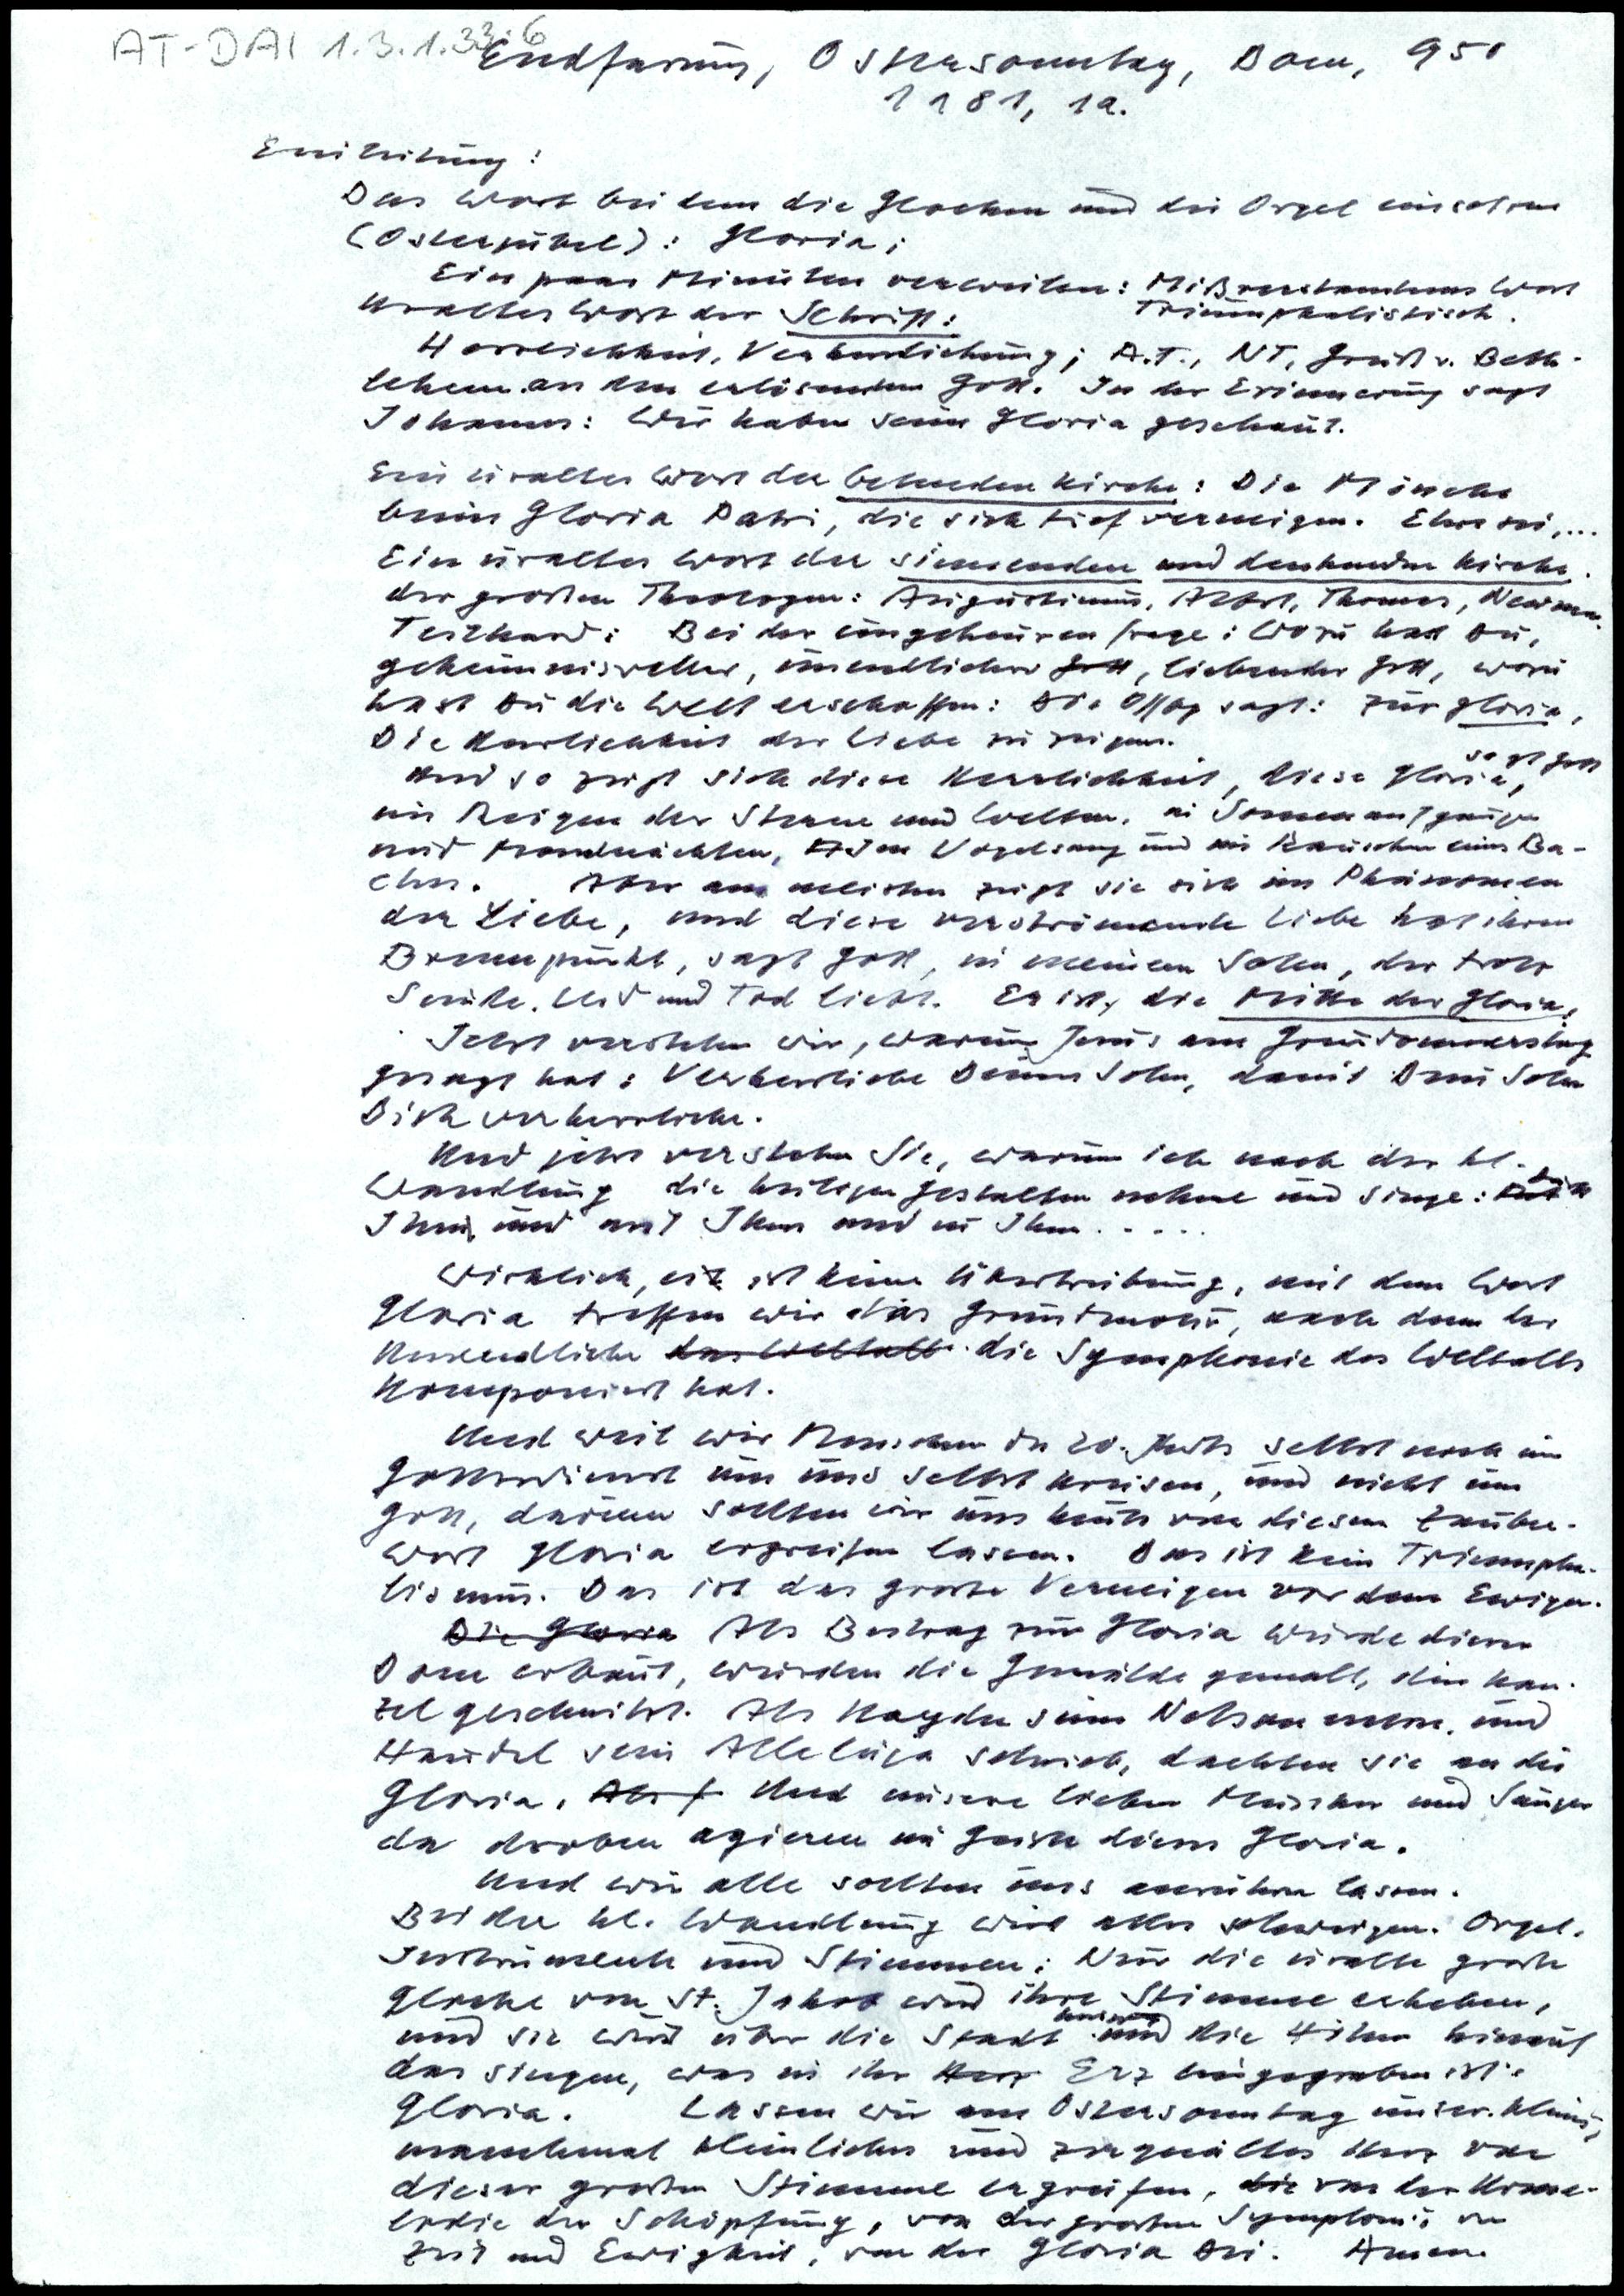 AT-DAI 1.3.1.33.6
Endfassung, Ostersonntag, Dom, 950
1981, 1a.
Einleitung:
Das Wort bei dem die Glocken und die Orgel einsetzen
(Osterjubel): Gloria;
Ein paar Minuten verweilen: Mißverstandenes Wort
Triumphalistisch.
Uraltes Wort der Schrift:
Herrlichkeit, Verherrlichung; A.T., NT, Gruß v. Beth-
lehem an den erlösenden Gott. In der Erinnerung sagt
Johannes: Wir haben seine Gloria geschaut.
Ein uraltes Wort der betenden Kirche: Die Mönche
beim Gloria Patri, die sich tief verneigen. Ehre sei,...
Ein uraltes Wort der sinnenden und denkenden Kirche.
der großen Theologen: Augustinus, Albert, Thomas, Newman.
Teilhard: Bei der ungeheuren Frage: Wozu hast Du,
geheimnisvoller, unendlicher Gott, liebender Gott, wozu
hast Du die Welt erschaffen: Die Offbg sagt: Zur gloria,
Die Herrlichkeit der Liebe zu zeigen.
Und so zeigt sich diese Herrlichkeit, diese Gloria, sagt Gott
im Reigen der Sterne und Welten, in Sonnenaufgängen
und Mondnächten, im Vogelsang und im Rauschen eines Ba-
ches. Aber am meisten zeigt sie sich im Phänomen
der Liebe, und diese verströmende Liebe hat ihren
Brennpunkt, sagt Gott, in meinem Sohn, der trotz
Sünde, Leid und Tod liebt. Er ist die Mitte der Gloria.
Jetzt verstehen wir, warum Jesus am Gründonnerstag
gesagt hat: Verherrliche Deinen Sohn, damit Dein Sohn
Dich verherrliche.
Und jetzt verstehen Sie, warum ich nach der hl.
Wandlung die heiligen Gestalten nehme und singe: Durch
Ihn und mit Ihm und in Ihm.....
Wirklich, es ist keine Übertreibung, mit dem Wort
Gloria treffen wir das Grundmotiv, nach dem der
Unendliche das Weltall die Symphonie des Weltalls
komponiert hat.
Und weil wir Menschen des 20. Jhdts selbst noch im
Gottesdienst um uns selbst kreisen, und nicht um
Gott, darum sollten wir uns heute von diesem Zauber-
wort Gloria ergreifen lassen. Das ist kein Triumpha-
lismus. Das ist das große Verneigen vor dem Ewigen.
Die Gloria Als Beitrag zur Gloria wurde dieser
Dom erbaut, wurden die Gemälde gemalt, die Kan-
zel geschnitzt. Als Haydn seine Nelsonmesse und
Händel sein Alleluja schrieb, dachten sie an die
Gloria. Und unsere lieben Musiker und Sänger
da droben agieren im Geiste dieses Gloria.
Und wir alle sollten uns anrühren lassen.
Bei der hl. Wandlung wird alles schweigen. Orgel,
Instrumente und Stimmen: Nur die uralte große
Glocke von St. Jakob wird ihre Stimme erheben,
und sie wird über die Stadt und die Höhen hinaus
das singen, was in ihr Herz Erz eingegraben ist:
Gloria. Lassen wir am Ostersonntag unser kleines,
manchmal kleinliches und zerquältes Herz von
dieser großen Stimme ergreifen, die von der
der Schöpfung, von der großen Symphonie von
Zeit und Ewigkeit, von der Gloria Dei. Amen.